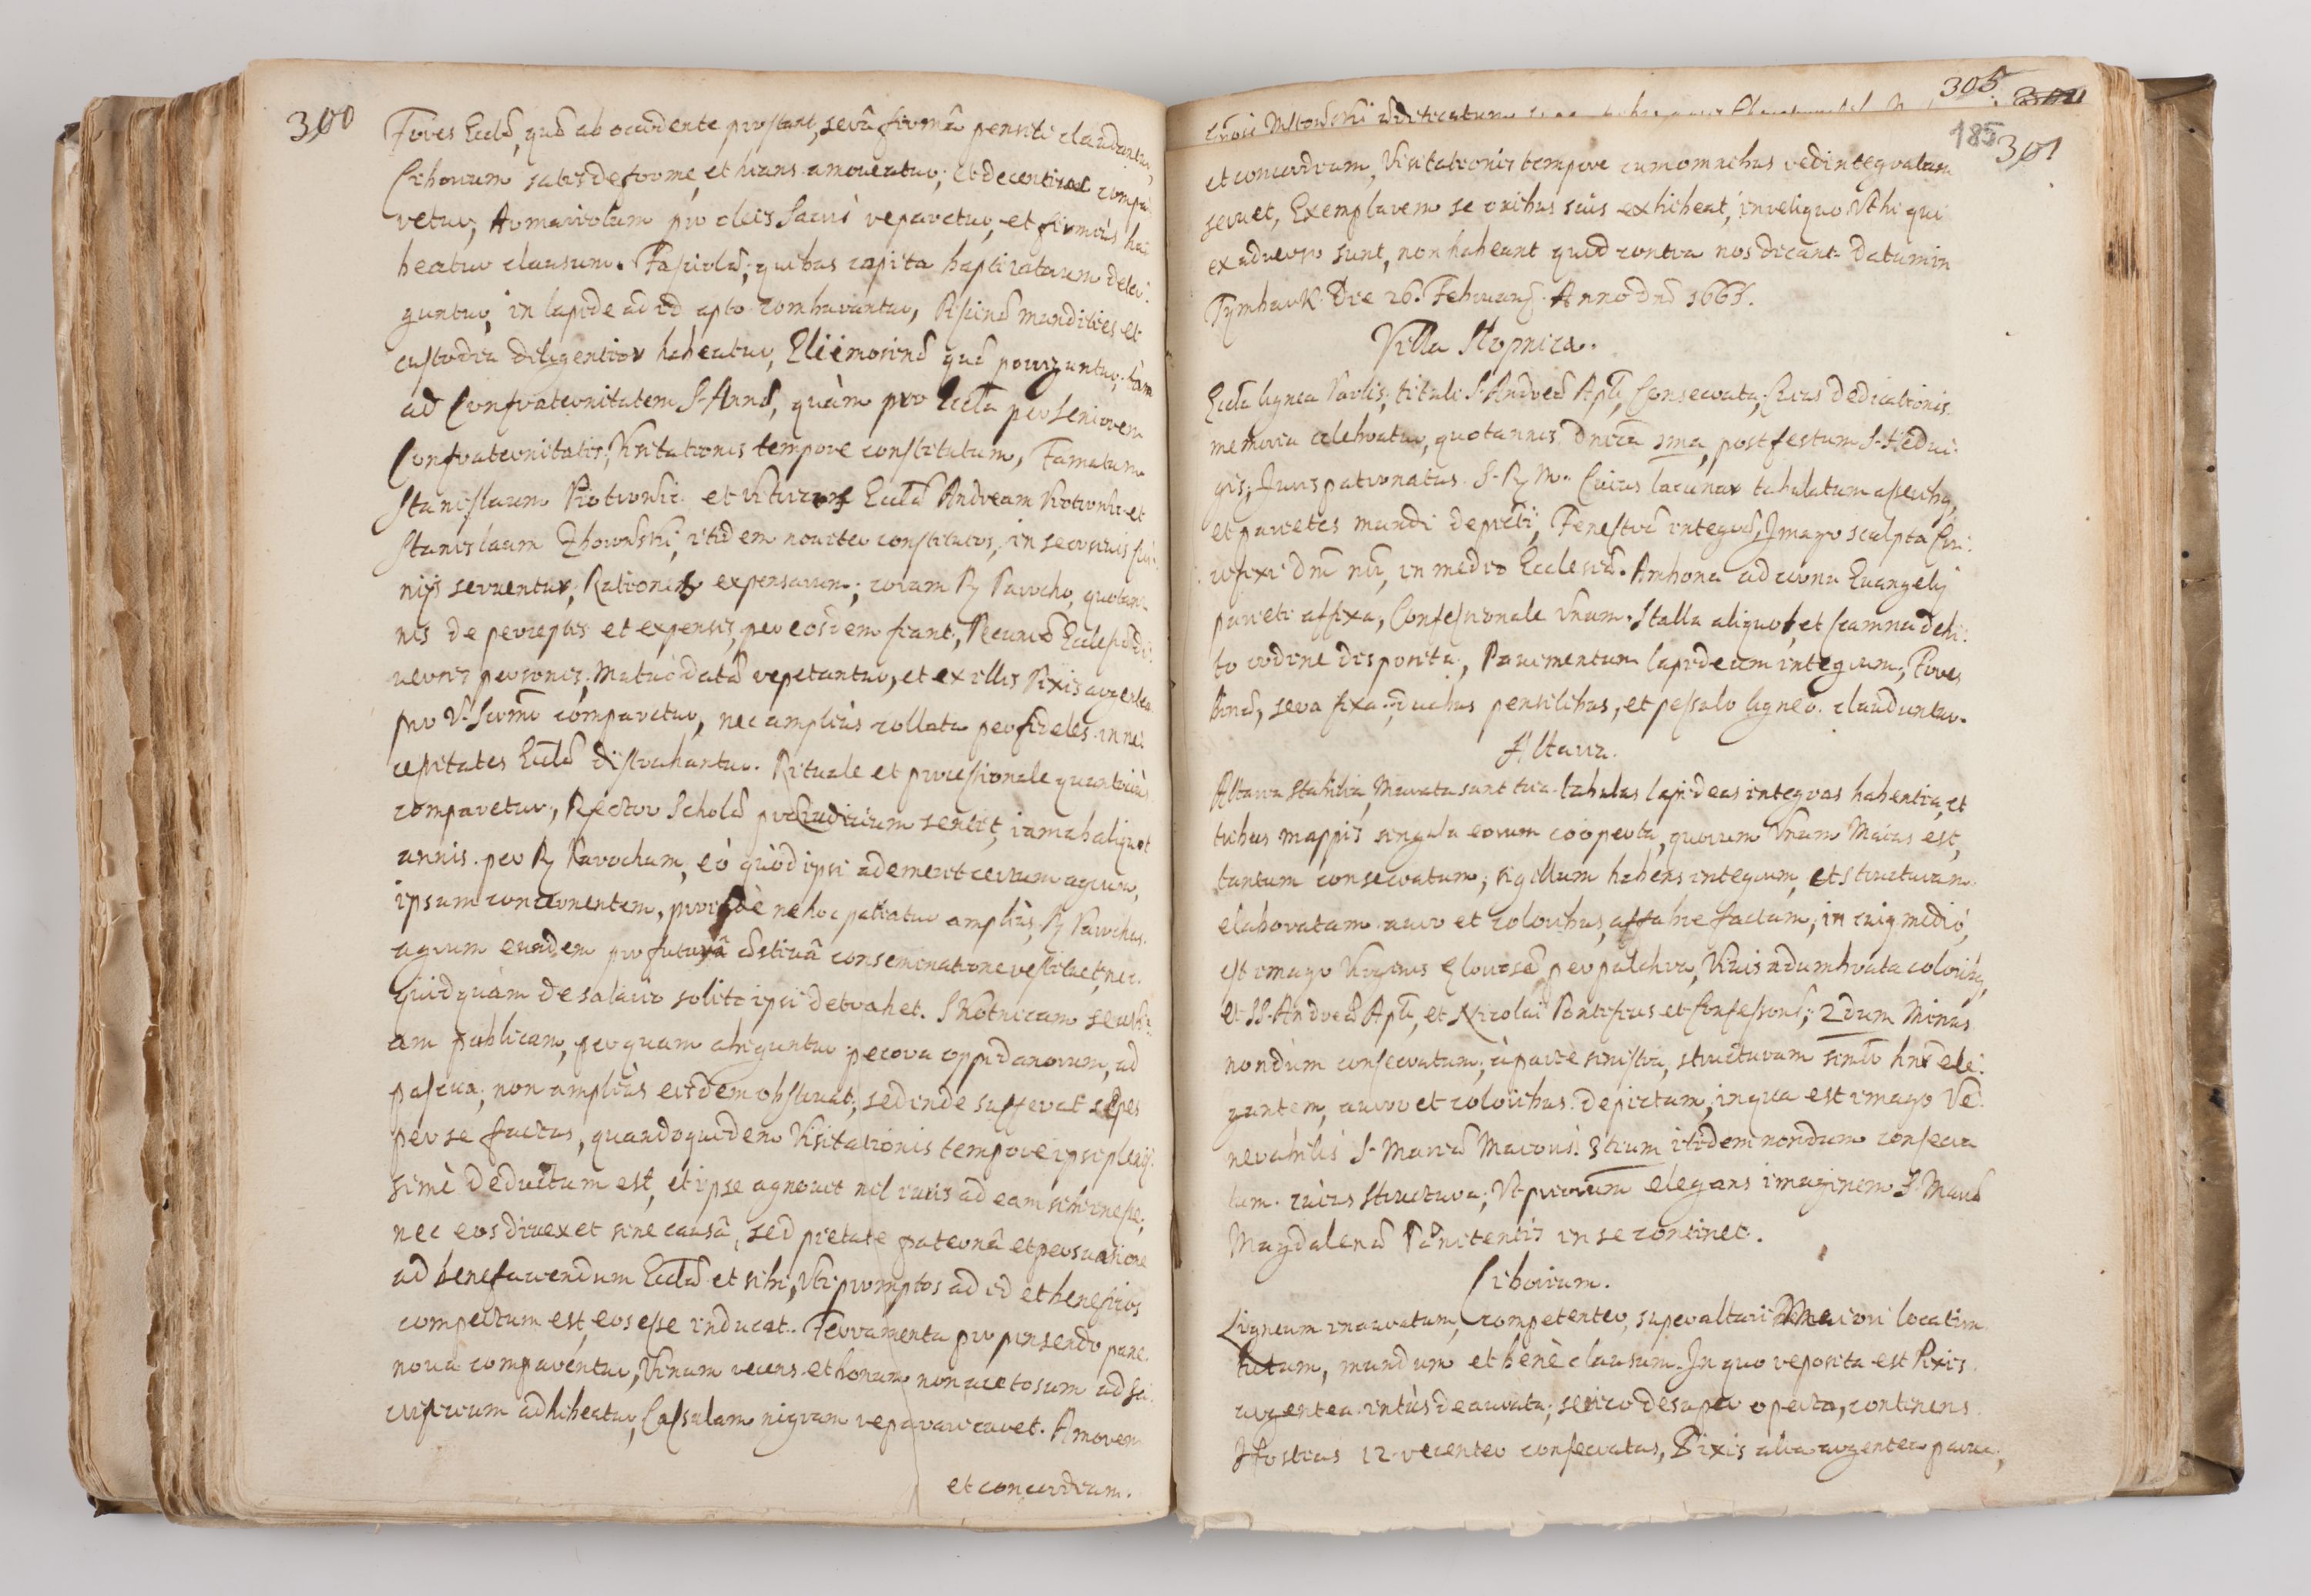 300
Fores Eccłae, quae ab occidente prostant, serâ firmâ pensili claudantur,
Ciborium satis deforme, et hians amoueatur, et decentius compa-
retur, Armariolum pro oleis Sacris reparetur, et firmius ha-
beatur clausum. Fasciolae, quibus capita baptizatorum deli-
guntur, in lapide ad id apto comburantur, Piscinae mundities et
custodia diligentior habeatur, Eliemosinae quae porriguntur, tam
ad Confraternitatem S. Annae, quàm pro Eccła per Seniorem
Confraternitatis, Visitationis tempore constitutum, Famatum
Stanislaum Piotrowski et Vitricos Eccłae Andream Piotrowski et
Stanislaum itidem nouiter constitutos, in securis
nijs seruentur, Rationes expensarum, coram R Parocho, quotan-
nis de perceptis et expensis, per eosdem fiant, Pecuniae Ecclesiae di-
uersis personis, mutuò datae repetantur, et ex illis Pixis argentea
pro V. Scrm̃o comparetur, nec amplius collata per fideles in ne-
cessitates Eccłae distrahantur. Rituale et processionale quantocius
comparetur, Rector Scholae praeiudicium sentit, iam ab aliquot
annis per R Parochum, eò quòd ipsi ademerit certum agrum,
ipsum concernentem, proinde ne hoc patiatur amplius, R Parochus
agrum eundem pro futura aestiuâ conseminatione restituet, nec
quidquàm de salario solito ipsi detrahet. Skotnicam seu vi-
am publicam, per quam abiguntur pecora oppidanorum, ad
pascua, non amplius eisdem obstruat, sed inde sufferat sepes
per se factas, quandoquidem Visitationis tempore ipsi plenis-
simè deductum est, et ipse agnouit nil iuris ad eam sibi inesse,
nec eos diuexet sine causâ, sed pietate paternâ et persuasione
ad benefaciendum Eccłae et sibi, Vti promptos ad id et beneficos
compertum est, eos esse inducat. Ferramenta pro pinsendo pane
noua comparentur, Vinum recens et bonum non acetosum ad Sa-
crificium adhibeatur, Casulam nigram reparari curet. Amorem
et concordiam.
305
185
301
et concordiam, Visitationis tempore cum omnibus redintegratam
seruet, Exemplarem se ouibus suis exhibeat, in reliquo Vt hi qui
ex aduerso sunt, non habeant quid contra nos dicant. Datum in
Tymbark. Die 26. Februarij Anno Dnĩ 1665.
Villa Słopnica.
Eccła lignea Parlis, tituli S. Andreae Apłi, Consecrata, Cuius dedicationis
memoria celebratur, quotannis Dnica 1ma, post festum S. Hedui-
gis, Iuris patronatus S. R. M. Cuius lacunar tabulatum asseribus,
et parietes mundi depicti, Fenestrae integrae, Imago sculpta Cru-
cifixi Dnĩ nrĩ, in medio Ecclesiae. Ambona ad cornu Euangelij
parieti affixa, Confessionale Vnum. Stalla aliquot, et scamna debi-
to ordine disposita, Pauimentum lapideum integrum, Fores
binae, sera fixa, duabus pensilibus, et pessulo ligneo clauduntur.
Altaria.
Altaria stabilia, Murata sunt tria tabulas lapideas integras habentia, et
tribus mappis singula eorum coöperta, quorum Vnum Maius est,
tantum consecratum, sigillum habens integrum, et structuram
elaboratam auro et coloribus, affabre factam, in cuius medio,
est imago Virginis Gloriosae perpulchra, Viuis adumbrata coloribus,
et SS. Andreae Apłi, et Nicolai Pontificis et Confessoris, 2dum Minus
nondum consecratum, à parte sinistra, structuram simłr hñs ele-
gantem, auro et coloribus depictam, in qua est imago Ve-
nerabilis S. Mariae Maioris. 3tium itidem nondum consecra-
tum. cuius structura, Vt priorum elegans imaginem S. Mariae
Magdalenae Paenitentis in se continet.
Ciborium.
Ligneum inauratum, competenter, super altari Maiori locatum
tutum, mundum et benè clausum. In quo reposita est Pixis
argentea intùs deaurata, serico desuper operta, continens
Hostias 12 recenter consecratas, Pixis alia argentea parua,